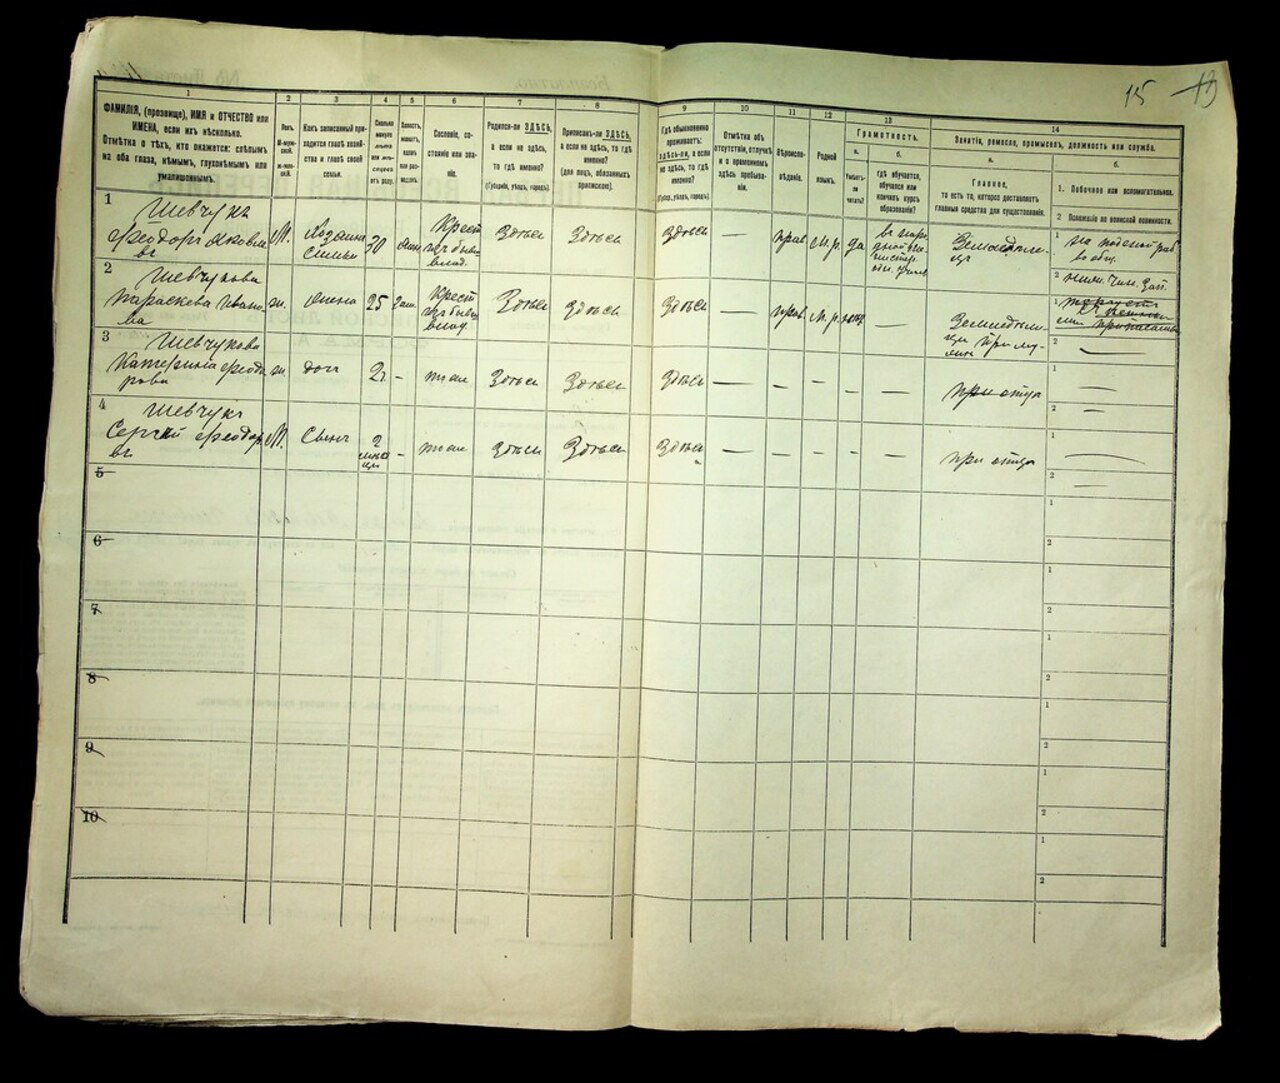 15 13
1
2
3
4
5
6
7
8
9
10
11
12
13
14
ФАМИЛІЯ, (прозвище), ИМЯ и ОТЧЕСТВО или
ИМЕНА, если ихъ нѣсколько.
Отмѣтка о тѣхъ, кто окажется: слѣпымъ
на оба глаза, нѣмымъ, глухонѣмымъ или
умалишоннымъ.
Полъ.
М-муж-
ской.
Ж-жен-
скій.
Какъ записанный при-
ходится главѣ хозяй-
ства и главѣ своей
семьи.
Сколько
минуло
лѣтъ
или мѣ-
сяцевъ
отъ роду.
Холостъ,
женатъ,
вдовъ
или раз-
веденъ.
Сословіе, со-
стояніе или зва-
ніе.
Родился-ли ЗДѢСЬ,
а если не здѣсь,
то гдѣ именно?
(Губернія, уѣздъ, городъ).
Приписанъ-ли ЗДѢСЬ,
а если не здѣсь, то гдѣ
именно?
(для лицъ, обязанныхъ
припискою).
Гдѣ обыкновенно
проживаетъ:
здѣсь-ли, а если
не здѣсь, то гдѣ
именно?
(Губер., уѣздъ, городъ).
Отмѣтка объ
отсутствіи, отлучкѣ
и о временномъ
здѣсь пребыва-
ніи.
Вѣроиспо-
вѣданіе.
Родной
языкъ.
Грамотность.
а.
Умѣетъ-
ли
читать?
б.
гдѣ обучается,
обучался или
кончилъ курсъ
образованія?
Занятіе, ремесло, промыселъ, должность или служба.
а.
Главное,
то есть то, которое доставляетъ
главныя средства для существованія.
б.
1. Побочное или вспомогательное.
2 Положеніе по воинской повинности.
1
Шевчукъ
Феодоръ Яковле
въ
М.
Хозяинъ
Семьи
30
жен.
Крест
изъ бывш
влад.
Здѣсь
Здѣсь
Здѣсь
—
прав
М. р.
да
въ народной
Земледѣле-
цъ
1
2
2
Шевчукова
Параскева Ивано-
ва
ж.
Жена
25
зам.
Крест
изъ бывш
влад.
Здѣсь
Здѣсь
Здѣсь
—
прав
М. р.
нѣтъ
—
Земледѣли-
ца при му-
жѣ
1
2 —
3
Шевчукова
Катерина Феодо
рова
ж.
дочь
2 г.
-
тоже
Здѣсь
Здѣсь
Здѣсь
—
-
-
-
—
при отцѣ
1 —
2 —
4
Шевчукъ
Сергѣй Феодор
въ
М.
Сынъ
2
мѣся
цы
-
тоже
Здѣсь
Здѣсь
Здѣсь
—
-
-
-
—
при отцѣ
1 —
2 —
5
1
2
6
1
2
7
1
2
8
1
2
9
1
2
10
1
2